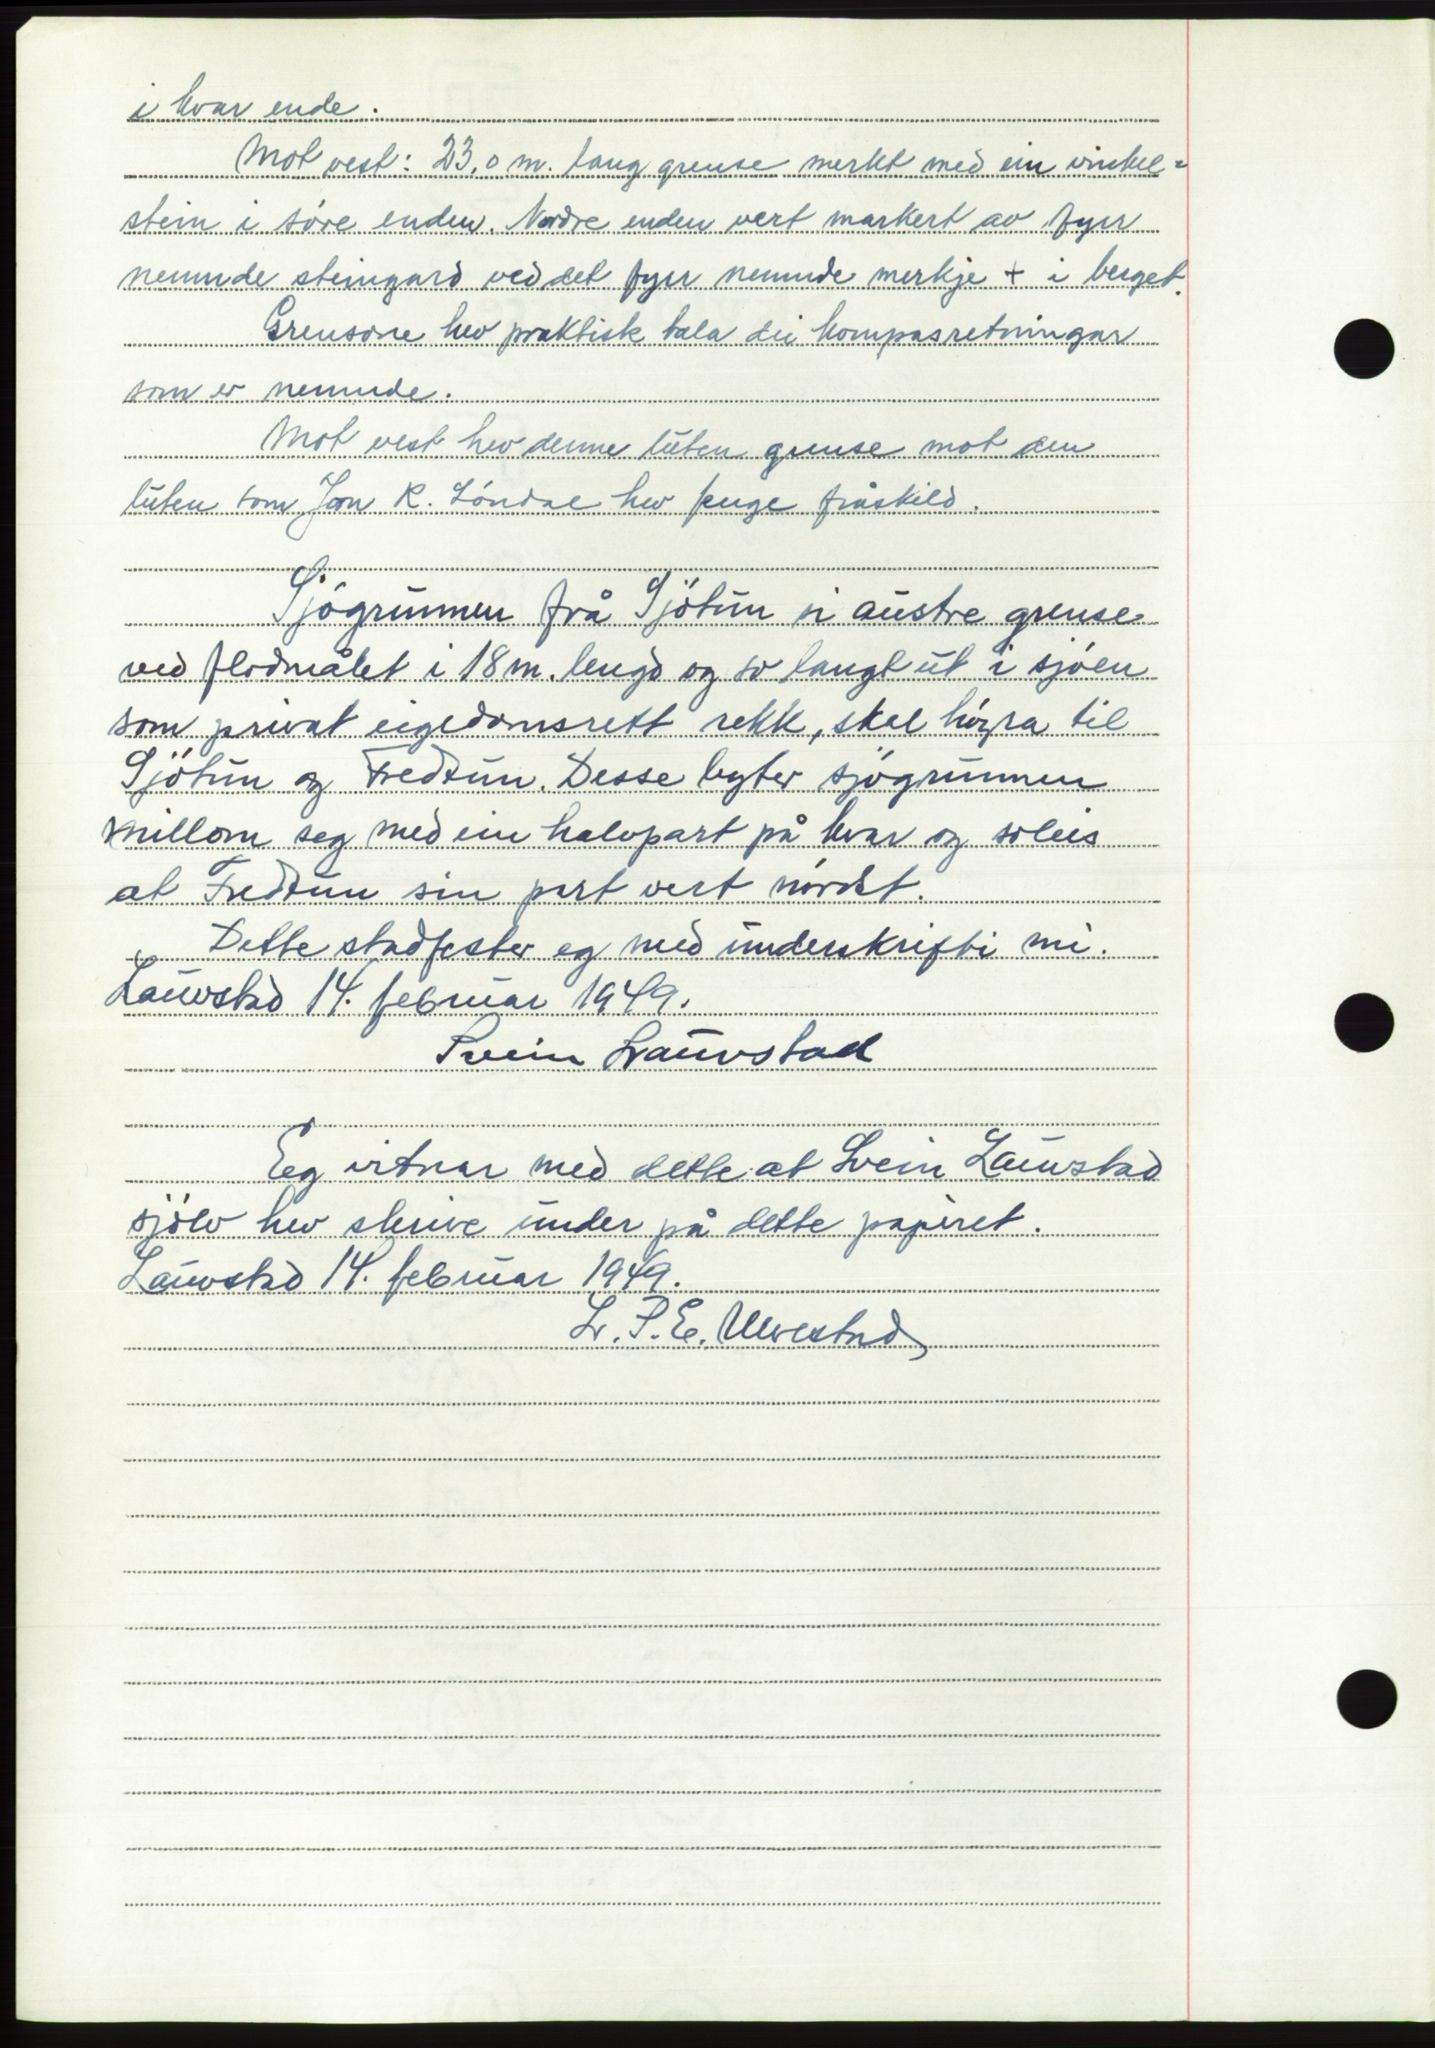 i kvar ende.
Mot vest: 23,0 m. lang grense merkt med ein vinkel=
stein i söre enden. Nordre enden vert markert av fyrr
nemnde steingard ved det fyrr nemnde merkje + i berget.
Grensone hev praktisk tala dei kompasretningar
som er nemnde.
Mot vest hev denne luten grense mot den
luten som Jon K. Löndal hev fenge fråskild.
Sjögrunnen frå Sjötun si austre grense
ved flodmålet i 18 m. lengd og so langt ut i sjöen
som privat eigedomsrett rekk, skal höyra til
Sjötun og Fredtun. Desse byter sjögrunnen
millom seg med ein halvpart på kvar og soleis
at Fredtun sin part vert nördst.
Dette stadfester eg med underskrifti mi.
Lauvstad 14. februar 1949.
Svein Lauvstad
Eg vitnar med dette at Svein Lauvstad
sjölv hev skrive under på dette papiret.
Lauvstad 14. februar 1949.
L. P. E. Ulvestad